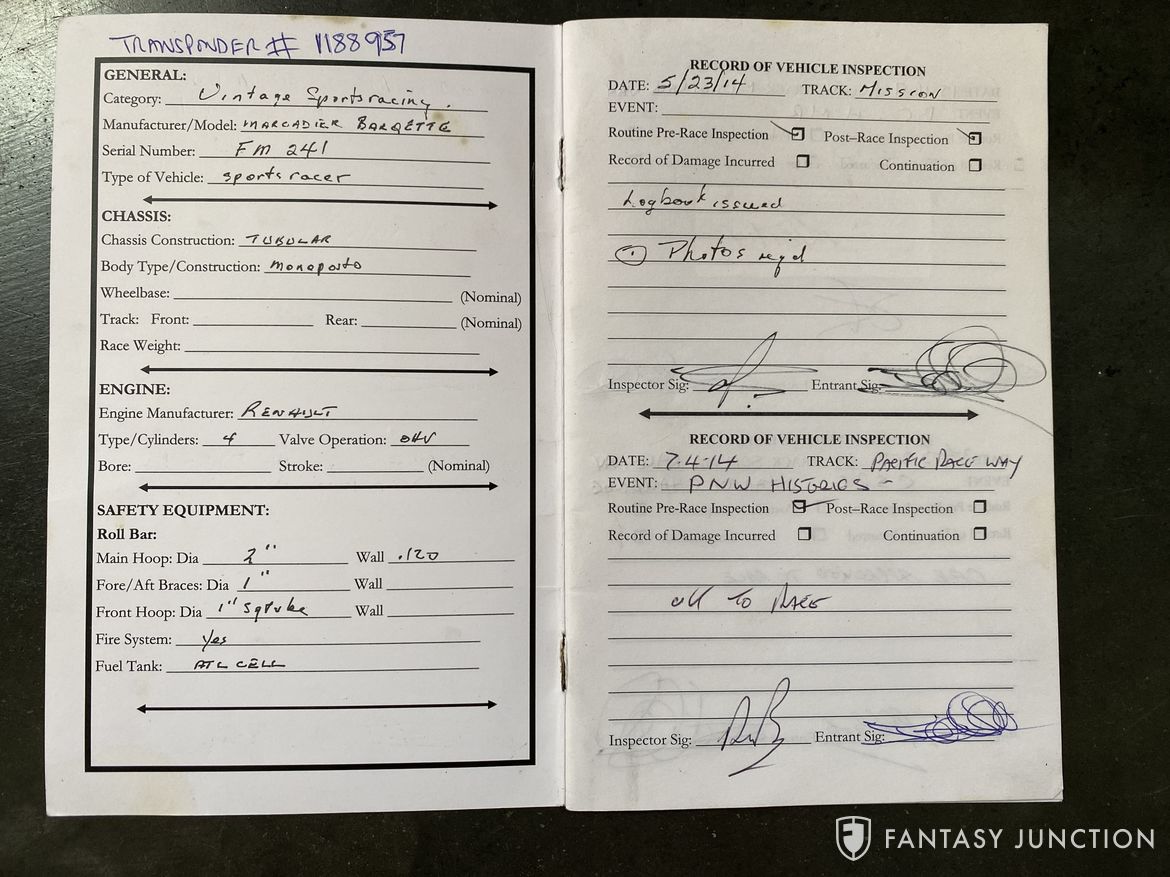 TRANSPONDER # 1188957
GENERAL:
Category: Vintage Sportsracing.
Manufacturer/Model: MARCADIER BARQETTE
Serial Number: FM 241
Type of Vehicle: sports racer
CHASSIS:
Chassis Construction: TUBULAR
Body Type/Construction: monoposto
Wheelbase: (Nominal)
Track: Front: Rear: (Nominal)
Race Weight:
ENGINE:
Engine Manufacturer: RENAULT
Type/Cylinders: 4 Valve Operation: OHV
Bore: Stroke: (Nominal)
SAFETY EQUIPMENT:
Roll Bar:
Main Hoop: Dia 2" Wall .120
Fore/Aft Braces: Dia 1" Wall
Front Hoop: Dia 1" Sqtube Wall
Fire System: Yes
Fuel Tank: ATL CELL
RECORD OF VEHICLE INSPECTION
DATE: 5/23/14 TRACK: MISSION
EVENT:
Routine Pre-Race Inspection Post–Race Inspection
Record of Damage Incurred Continuation
Logbook issued
1 Photos req'd
Inspector Sig: Entrant Sig:
RECORD OF VEHICLE INSPECTION
DATE: 7-4-14 TRACK: PACIFIC RACE WAY
EVENT: PNW HISTORICS -
Routine Pre-Race Inspection Post–Race Inspection
Record of Damage Incurred Continuation
OK TO RACE
Inspector Sig: Entrant Sig:
FANTASY JUNCTION